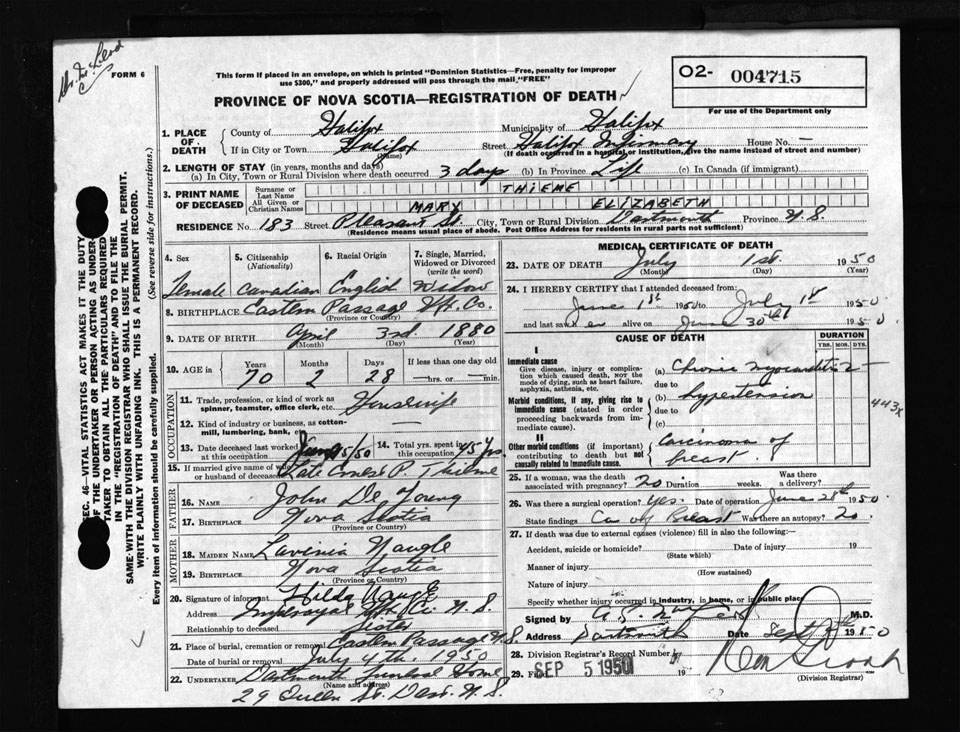 FORM 6
This form if placed in an envelope, on which is printed "Dominion Statistics—Free, penalty for improper
use $300," and properly addressed will pass through the mail "FREE"
O2- 004715
For use of the Department only
PROVINCE OF NOVA SCOTIA—REGISTRATION OF DEATH
1. PLACE OF DEATH
County of Halifax Municipality of Halifax
If in City or Town Halifax Street Halifax Infirmary House No. —
(Name) (If death occurred in a hospital or institution, give the name instead of street and number)
2. LENGTH OF STAY (in years, months and days)
(a) In City, Town or Rural Division where death occurred 3 days (b) In Province Life (c) In Canada (if immigrant)
3. PRINT NAME OF DECEASED
Surname or Last Name THIEME
All Given or Christian Names MARY ELIZABETH
RESIDENCE No. 183 Street Pleasant St. City, Town or Rural Division Dartmouth Province N.S.
(Residence means usual place of abode. Post Office Address for residents in rural parts not sufficient)
4. Sex
Female
5. Citizenship (Nationality)
Canadian
6. Racial Origin
English
7. Single, Married, Widowed or Divorced (write the word)
Widow
8. BIRTHPLACE Eastern Passage Hfx. Co.
(Province or Country)
9. DATE OF BIRTH April 3rd. 1880
(Month) (Day) (Year)
10. AGE in
Years Months Days If less than one day old
70 2 28 —hrs. or —min.
OCCUPATION
11. Trade, profession, or kind of work as
spinner, teamster, office clerk, etc. Housewife
12. Kind of industry or business, as cotton-
mill, lumbering, bank, etc. —
13. Date deceased last worked at this occupation
14. Total yrs. spent in 45 yrs
15. If married give name of
husband or deceased Late Ernest P. Thieme
FATHER
16. NAME John De Young
17. BIRTHPLACE Nova Scotia
(Province or Country)
MOTHER
18. MAIDEN NAME Lavinia Naugle
19. BIRTHPLACE Nova Scotia
(Province or Country)
20. Signature of informant Hilda
Address Hfx. Co. N.S.
Relationship to deceased Sister
21. Place of burial, cremation or removal Eastern Passage N.S.
Date of burial or removal July 4th. 1950
22. UNDERTAKER Dartmouth Funeral Home
(Name and address)
29 Queen St. Dart. N.S.
MEDICAL CERTIFICATE OF DEATH
23. DATE OF DEATH July 1st. 1950
(Month) (Day) (Year)
24. I HEREBY CERTIFY that I attended deceased from:
June 1st 1950 to July 1st 1950
and last saw her alive on June 30th 1950
CAUSE OF DEATH
DURATION
YRS. MOS. DYS.
I
Immediate cause
Give disease, injury or complica-
tion which caused death, not the
mode of dying, such as heart failure,
asphyxia, asthenia, etc.
(a) Chronic myocarditis 2
due to
Morbid conditions, if any, giving rise to
immediate cause (stated in order
proceeding backwards from im-
mediate cause).
(b) hypertension
due to
(c)
443x
II
Other morbid conditions (if important)
contributing to death but not
causally related to immediate cause.
Carcinoma of
breast.
25. If a woman, was the death
associated with pregnancy? no Duration weeks. Was there a delivery?
26. Was there a surgical operation? yes. Date of operation June 28th 1950
State findings Ca of Breast Was there an autopsy? no.
27. If death was due to external causes (violence) fill in also the following:—
Accident, suicide or homicide? Date of injury 19
(State which)
Manner of injury
(How sustained)
Nature of injury
Specify whether injury occurred in industry, in home, or in public place
Signed by M.D.
Address Dartmouth Date Sept 1950
28. Division Registrar's Record Number
29. Filed SEP 5 1950 19
(Division Registrar)
SEC. 46—VITAL STATISTICS ACT MAKES IT THE DUTY
OF THE UNDERTAKER OR PERSON ACTING AS UNDER-
TAKER TO OBTAIN ALL THE PARTICULARS REQUIRED
IN THE "REGISTRATION OF DEATH" AND TO FILE THE
SAME WITH THE DIVISION REGISTRAR WHO SHALL ISSUE THE BURIAL PERMIT.
WRITE PLAINLY WITH UNFADING INK. THIS IS A PERMANENT RECORD.
Every item of information should be carefully supplied. (See reverse side for instructions.)